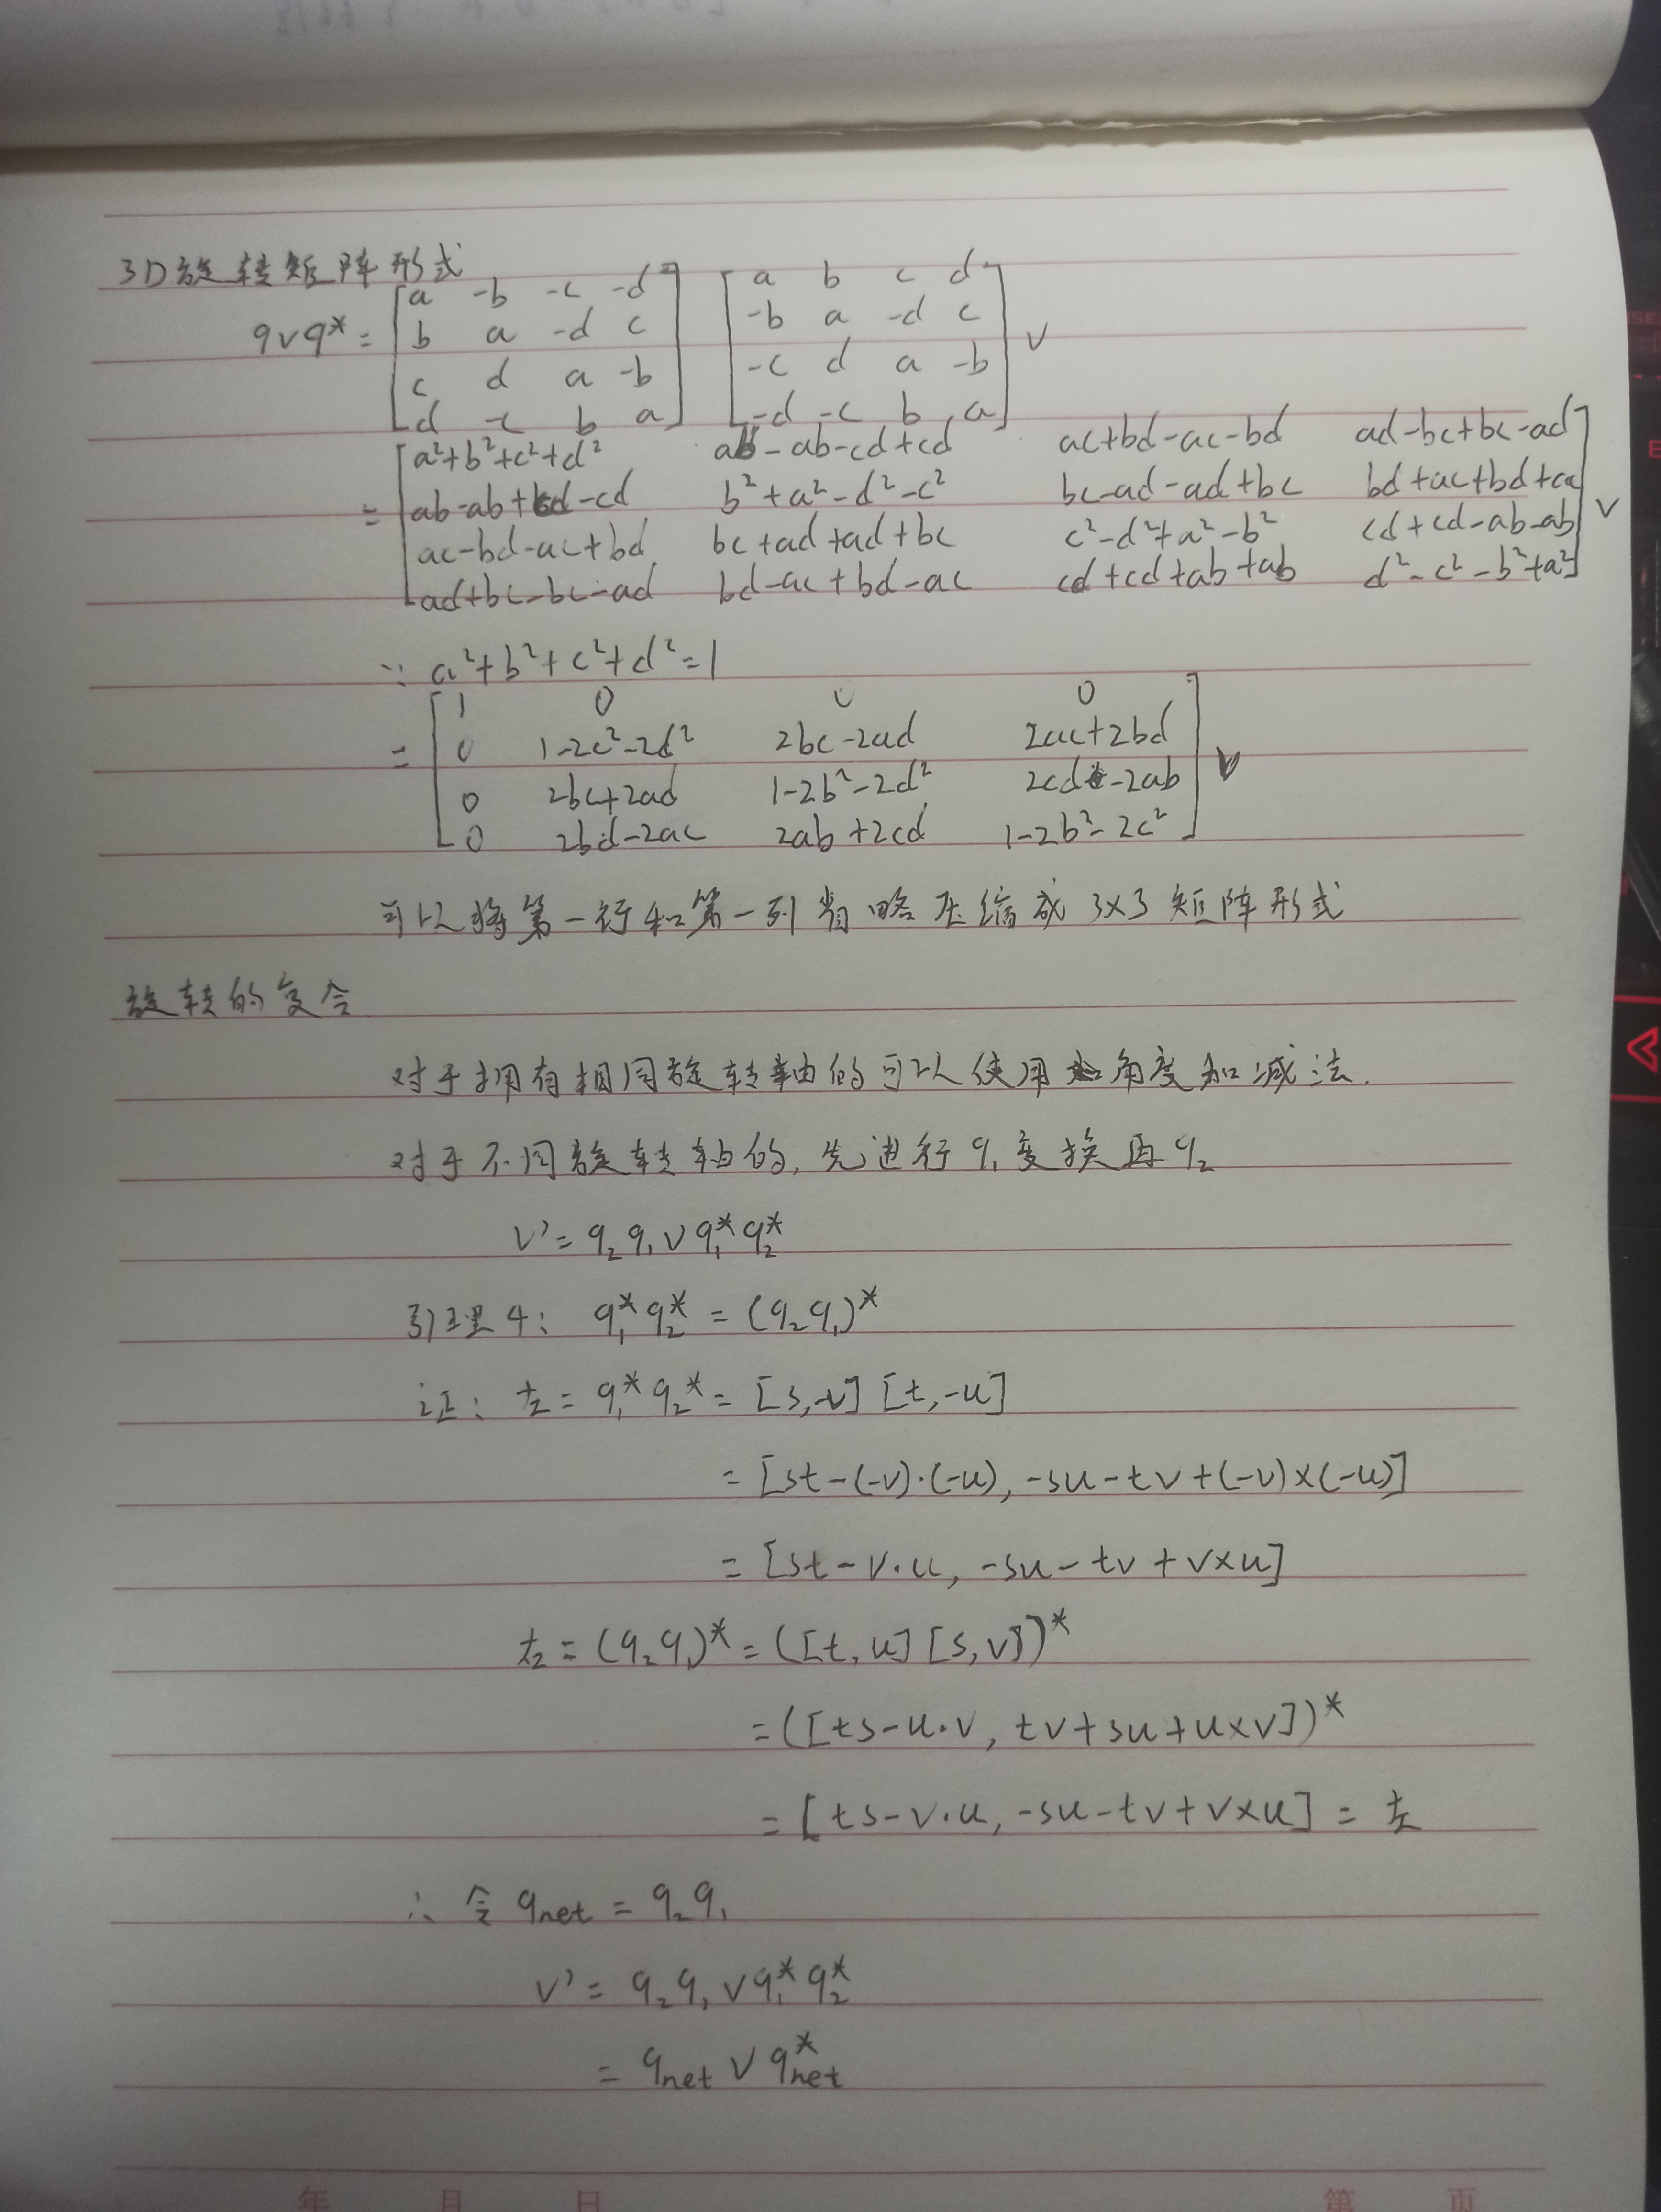 3D旋转矩阵形式
qvq* = [a -b -c -d] [a b c d]
[b a -d c] [-b a -d c] v
[c d a -b] [-c d a -b]
[d -c b a] [-d -c b a]
= [a²+b²+c²+d² ab-ab-cd+cd ac+bd-ac-bd ad-bc+bc-ad]
[ab-ab+cd-cd b²+a²-d²-c² bc-ad-ad+bc bd+ac+bd+ac] v
[ac-bd-ac+bd bc+ad+ad+bc c²-d²+a²-b² cd+cd-ab-ab]
[ad+bc-bc-ad bd-ac+bd-ac cd+cd+ab+ab d²-c²-b²+a²]
∵ a²+b²+c²+d²=1
= [1 0 0 0]
[0 1-2c²-2d² 2bc-2ad 2ac+2bd] v
[0 2bc+2ad 1-2b²-2d² 2cd-2ab]
[0 2bd-2ac 2ab+2cd 1-2b²-2c²]
可以将第一行和第一列省略压缩成3×3矩阵形式
旋转的复合
对于拥有相同旋转轴的可以使用角度加减法.
对于不同旋转轴的,先进行q₁变换再q₂
v'= q₂q₁vq₁*q₂*
引理4: q₁*q₂* = (q₂q₁)*
证: 左 = q₁*q₂* = [s,-v][t,-u]
= [st-(-v)·(-u), -su-tv+(-v)×(-u)]
= [st-v·u, -su-tv+v×u]
右 = (q₂q₁)* = ([t,u][s,v])*
= ([ts-u·v, tv+su+u×v])*
= [ts-v·u, -su-tv+v×u] = 左
∴ 令 qnet = q₂q₁
v'= q₂q₁vq₁*q₂*
= qnet v q*net
年 月 日 第 页